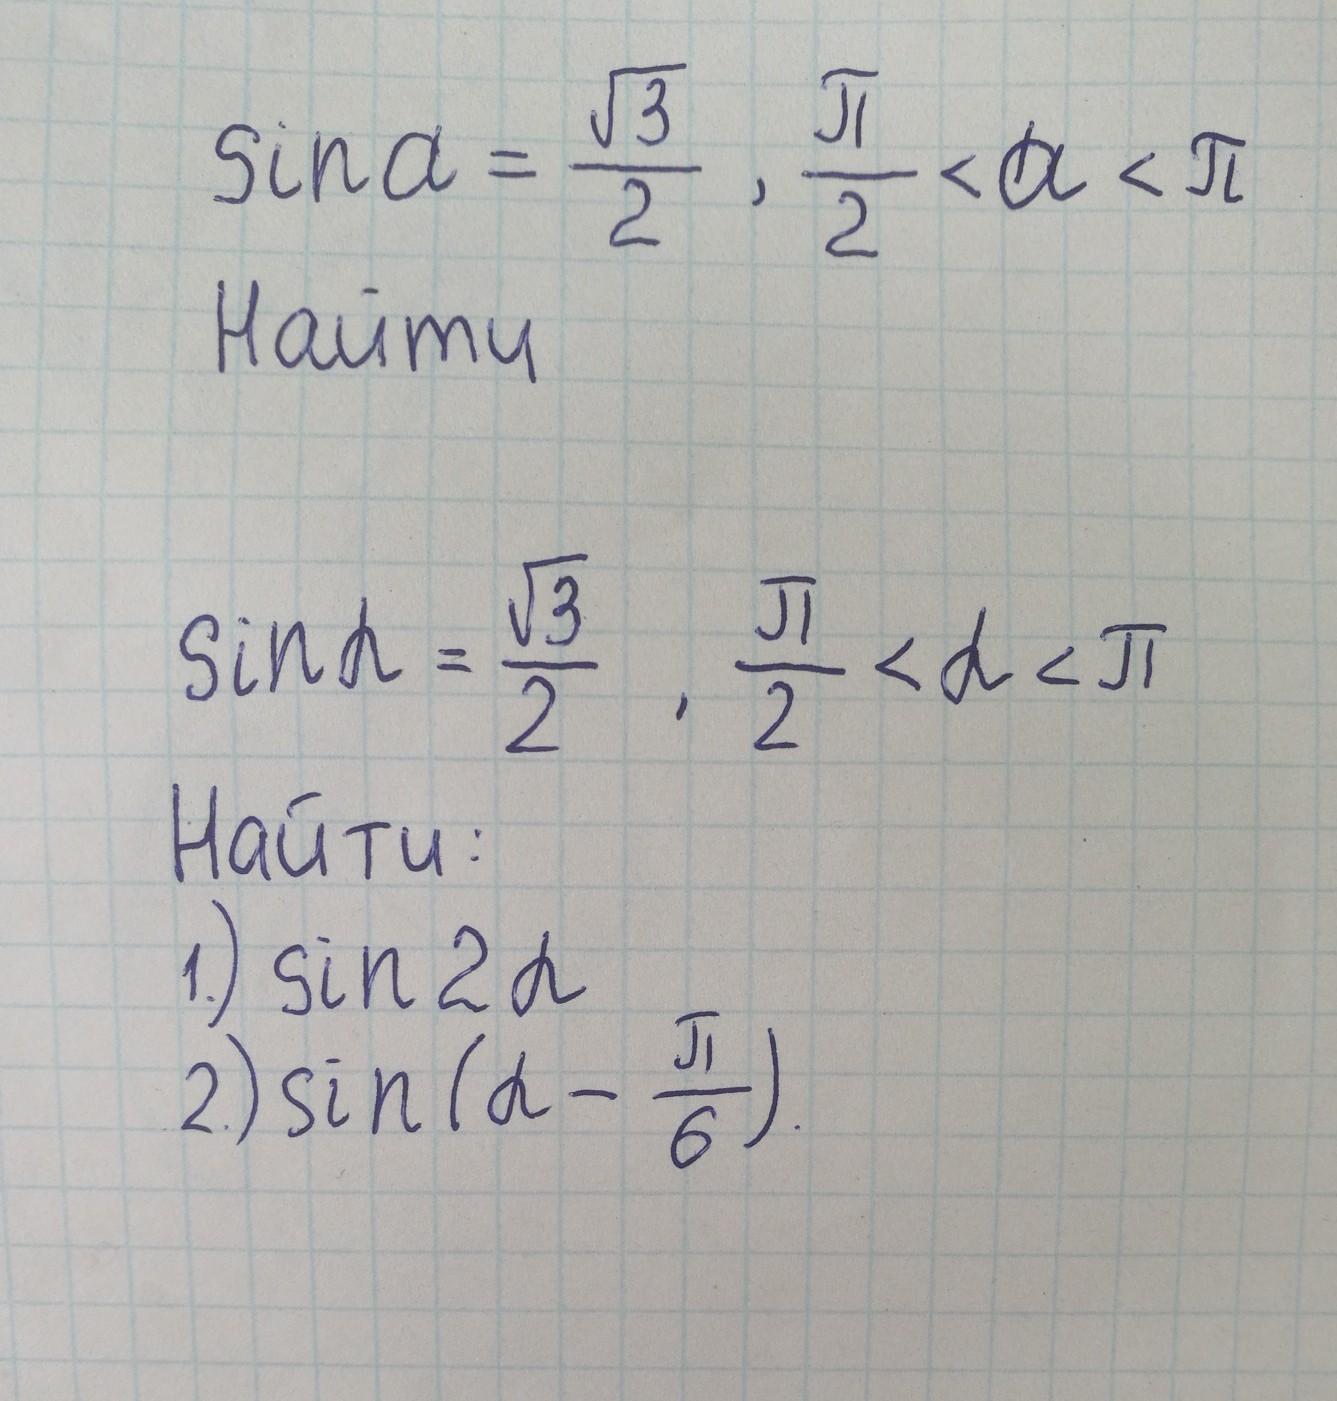 sin a = √3/2 , π/2 < a < π
Найти
sin α = √3/2 , π/2 < α < π
Найти:
1.) sin 2α
2.) sin(α - π/6).